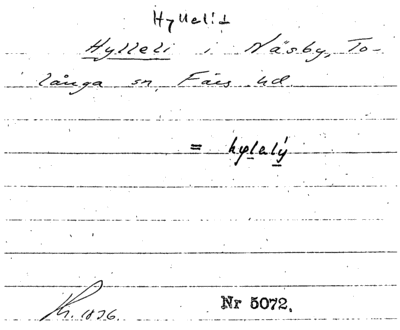 Hylleli
Hylleli i Näsby, To-
långa sn, Färs hd.
= hylelý
1896.
Nr 5072.